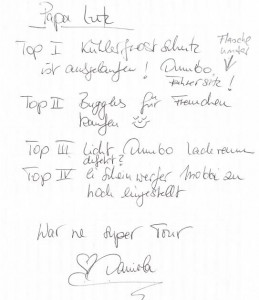 Papa Lutz
Top I Kühlerfrostschutz Flasche hinter
ist ausgelaufen! Dumbo, Fahrersitz!
Top II Buggles für Frenchen
kaufen
Top III Licht Dumbo Laderaum
defekt?
Top IV li Scheinwerfer zu
hoch eingestellt
War ne super Tour
Daniela